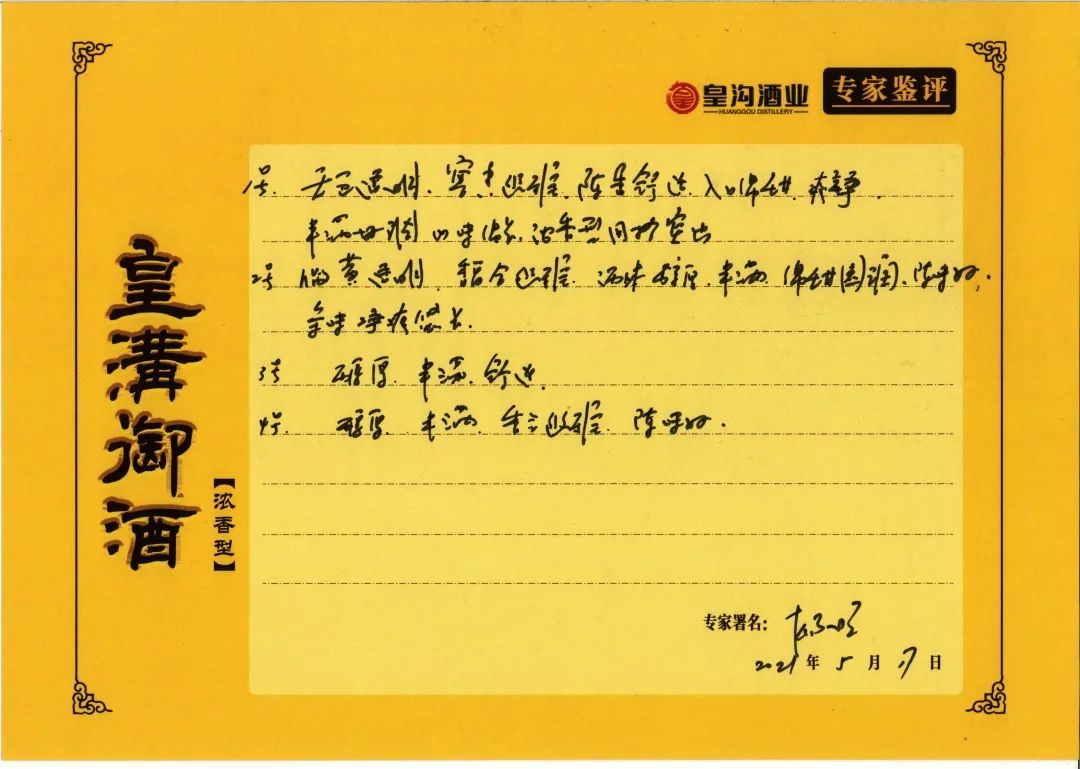 皇沟酒业
HUANGGOU DISTILLERY
专家鉴评
皇溝御酒
【浓香型】
1号. 无色透明. 窖香幽雅. 陈香舒适. 入口绵甜. 爽净.
丰满 浓香型 突出
2号 微黄透明. 幽雅. 酒体醇厚. 丰满. 绵甜圆润. 陈味好.
余味净爽悠长.
3号 醇厚. 丰满. 舒适.
4号. 醇厚. 丰满. 幽雅. 陈味好.
专家署名:
2021年5月17日